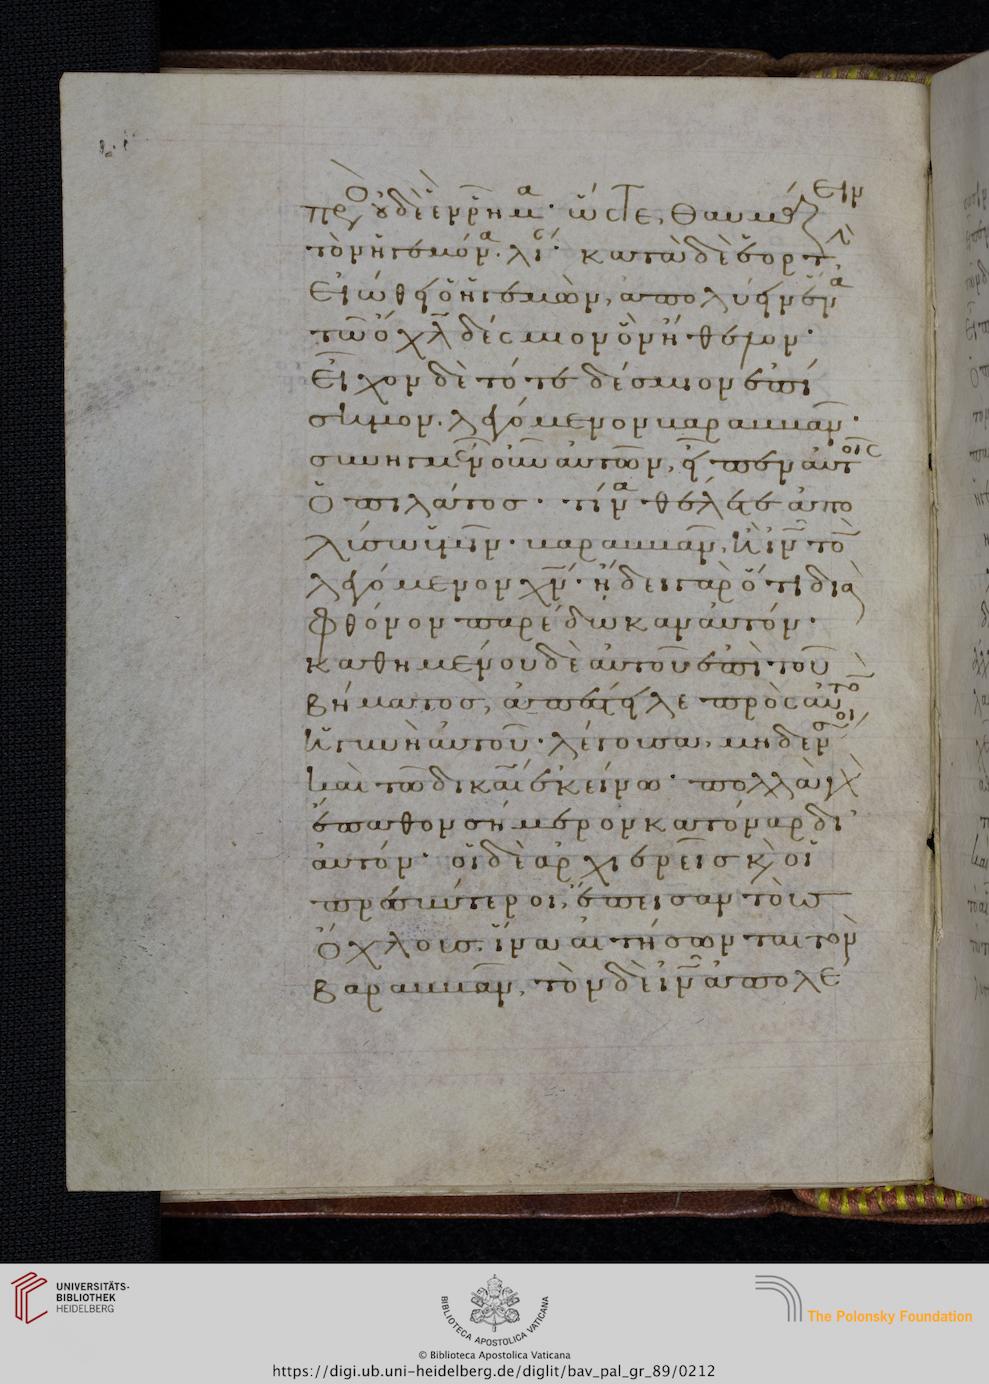 πρὸς οὐδὲ ἓν ῥῆμα· ὥστε θαυμάζειν
τὸν ἡγεμόνα λίαν· κατὰ δὲ ἑορτὴν
εἰώθει ὁ ἡγεμὼν, ἀπολύειν ἕνα
τῶ ὄχλω δέσμιον ὃν ἤθελον·
εἶχον δὲ τότε δέσμιον ἐπί
σημον· λεγόμενον βαραββᾶν·
συνηγμένων οὖν αὐτῶν, εἶπεν αὐτοῖς
ὁ πιλάτος· τίνα θέλετε ἀπο
λύσω ὑμῖν· βαραββᾶν, ἢ ιν τὸν
λεγόμενον χν· ἤδει γὰρ ὅτι διὰ
φθόνον παρέδωκαν αὐτόν·
καθημένου δὲ αὐτοῦ ἐπὶ τοῦ
βήματος, ἀπέστειλε πρὸς αὐτὸν
ἡ γυνὴ αὐτοῦ· λέγουσα, μηδέν σοι
καὶ τῶ δικαίω ἐκείνω· πολλὰ γὰρ
ἔπαθον σήμερον κατόναρ δι'
αὐτόν· οἱ δὲ ἀρχιερεῖς καὶ οἱ
πρεσβύτεροι, ἔπεισαν τοὺς
ὄχλους, ἵνα αἰτήσωνται τὸν
βαραββᾶν, τὸν δὲ ιν ἀπολέ
UNIVERSITÄTS-
BIBLIOTHEK
HEIDELBERG
BIBLIOTECA APOSTOLICA VATICANA
The Polonsky Foundation
© Biblioteca Apostolica Vaticana
https://digi.ub.uni-heidelberg.de/diglit/bav_pal_gr_89/0212